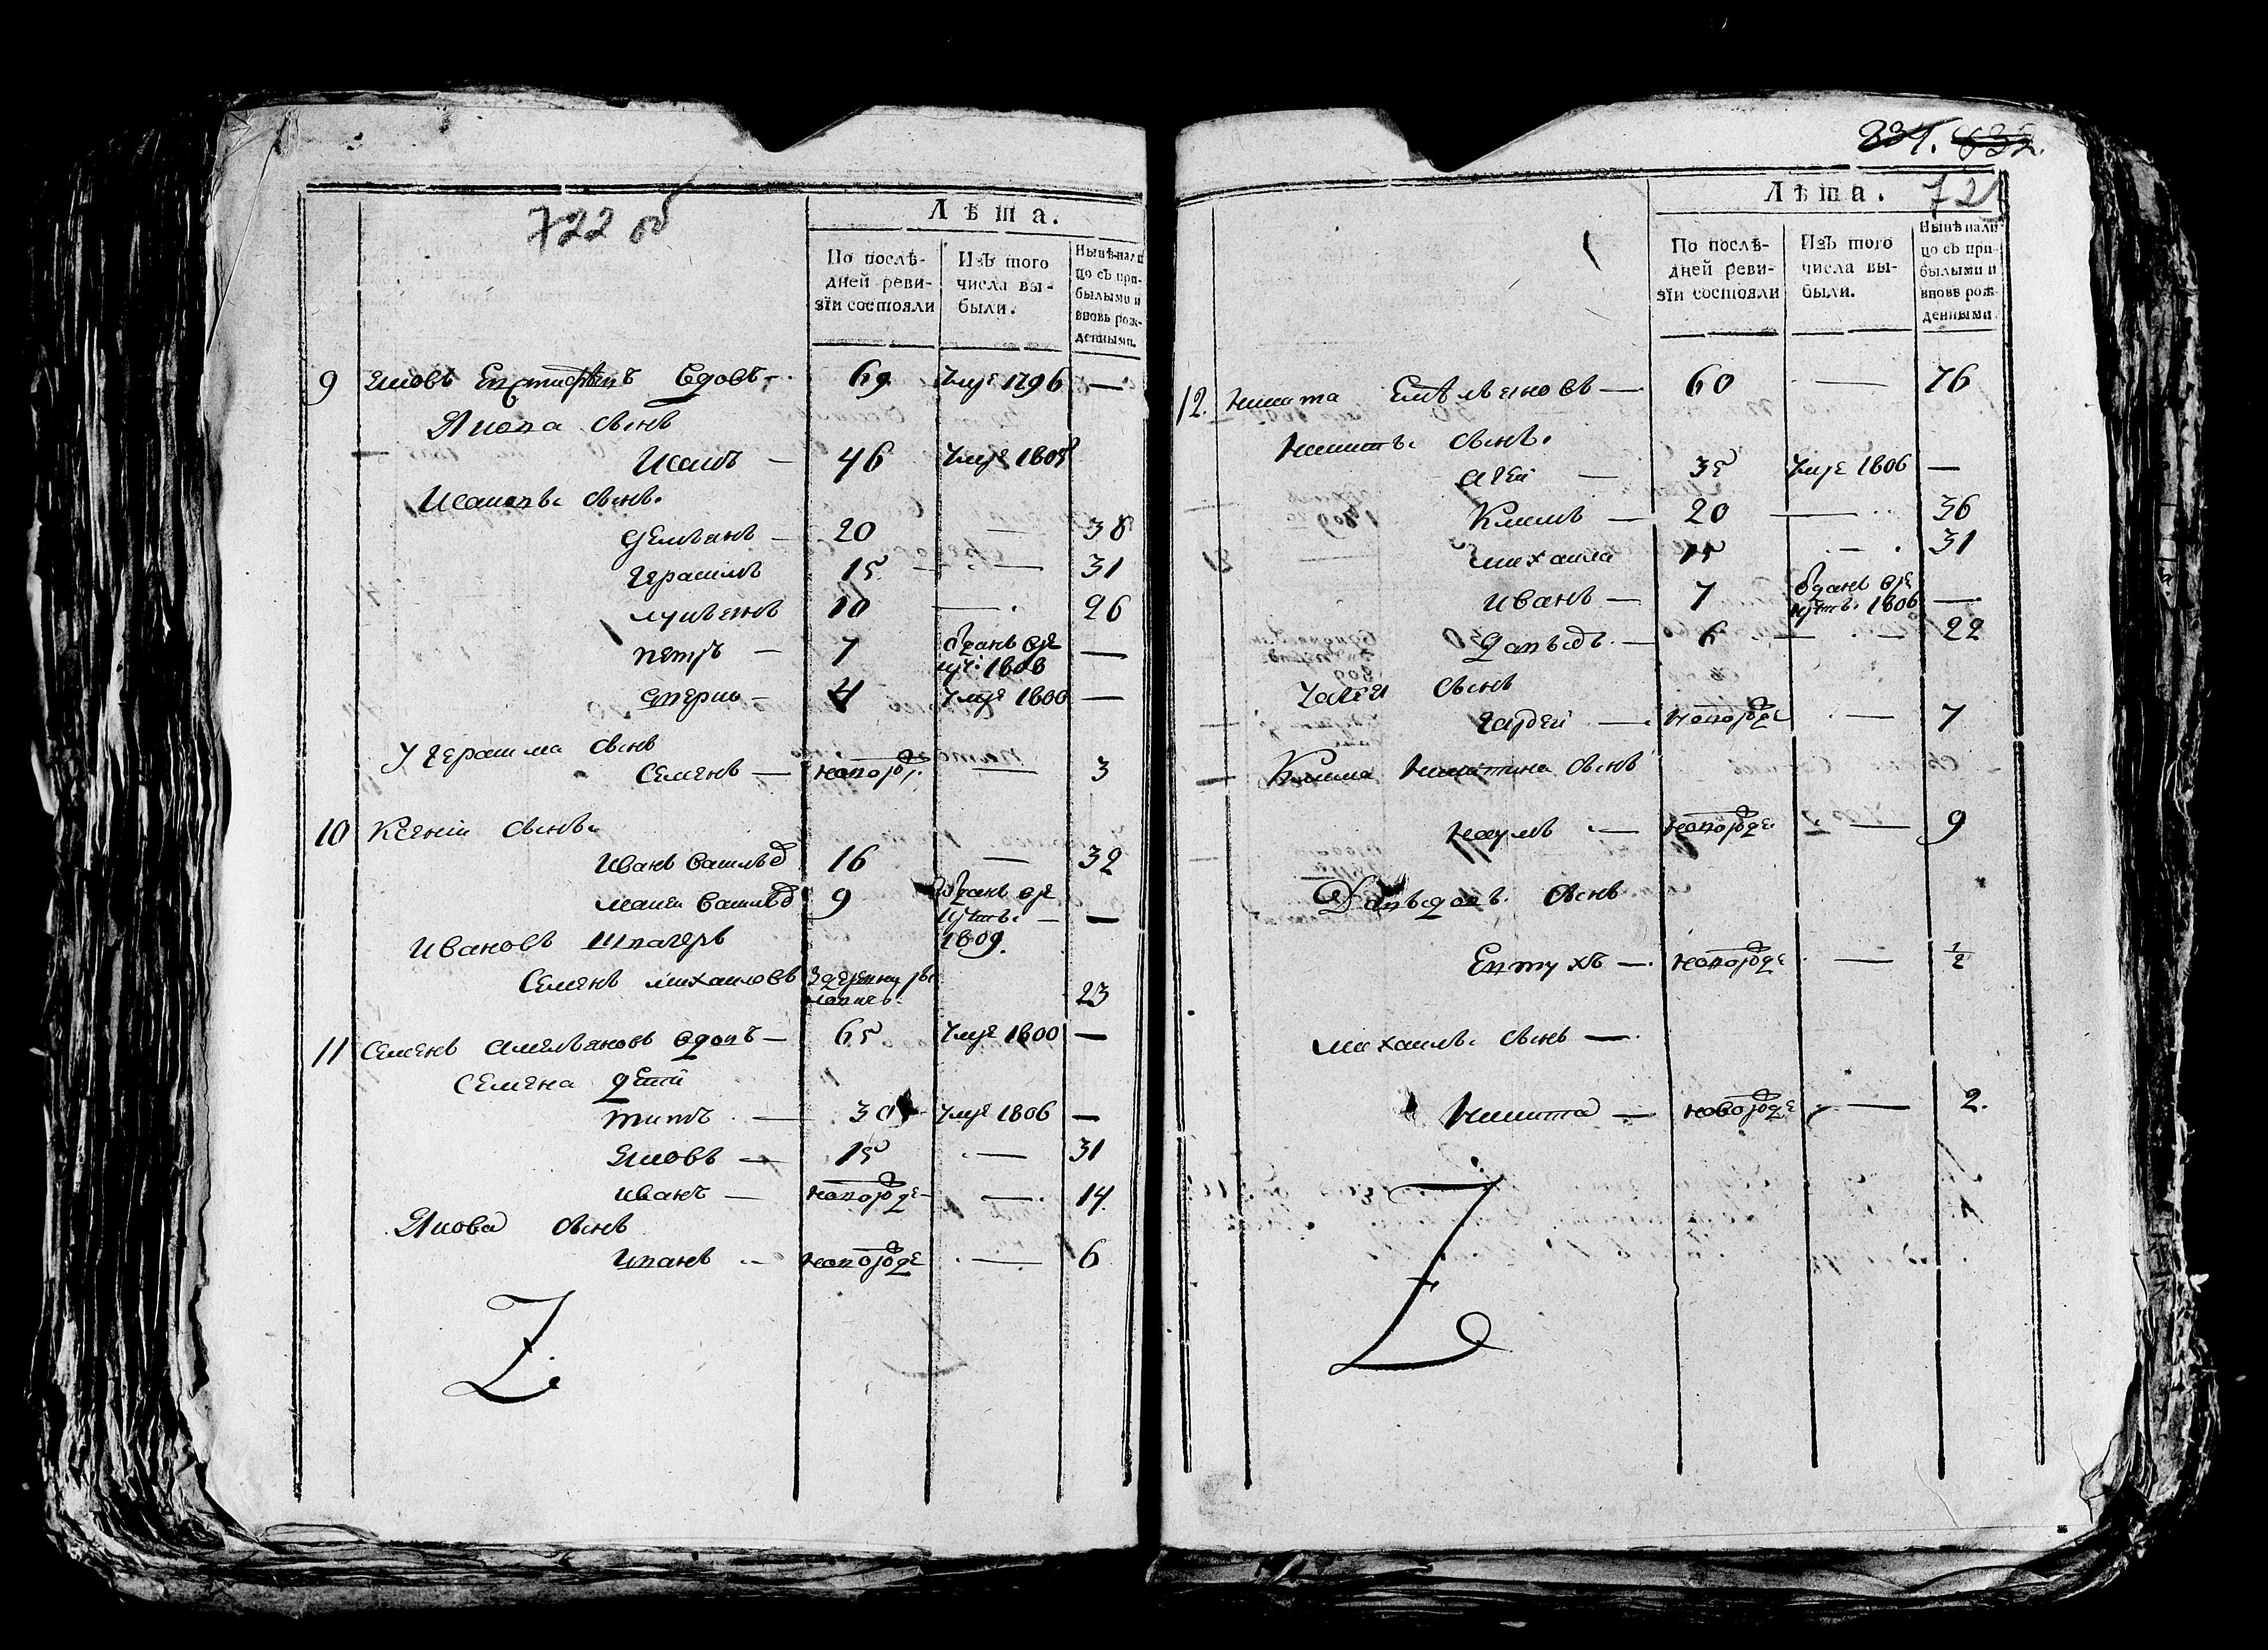 722 об
Лѣта.
По послѣ-
дней реви-
зїи состояли
Изъ того
числа вы-
были.
Нынѣ нали
цо съ при-
былыми и
вновь рож-
денными.
9 Яковъ вдовъ — 69 умре 1796 —
Якова сынъ
Исаикъ — 46 умре 1805
Исаиковы сынъ.
Демьянъ — 20 — 38
Герасимъ 15 — 31
Лукьянъ 10 — 26
Петръ — 7 отданъ въ ре
круты 1808 —
4 умре 1800 —
У Герасима сынъ
Семенъ — новорож. — 3
10 Ксении сынъ
Иванъ Василье 16 — 32
Василье 9 отданъ въ ре
круты —
Ивановъ шпагеръ 1809.
Семенъ Михаиловъ
23
11 Семенъ Амельяновъ вдовъ — 65 умре 1800 —
Семена дети
Титъ — 30 умре 1806 —
Яковъ — 15 — 31
Иванъ — новорожде — 14
Якова сынъ
Иванъ — новорожде — 6
Z
831. 832.
723
Лѣта.
По послѣ-
дней реви-
зїи состояли
Изъ того
числа вы-
были.
Нынѣ нали
цо съ при-
былыми и
вновь рож-
денными.
12. Никита Емѣльяновъ — 60 — 76
Никиты сынъ.
Агей — 35 умре 1806 —
Климъ — 20 — 36
Михаила 15 — 31
Иванъ — 7 отданъ в ре
круты 1806 —
Давыдъ — 6 — 22
У Агея сынъ
Гардей — новорожде — 7
Клима Никитина сынъ
Наумъ — новорожде — 9
Давыдовъ сынъ
Евтухъ — новорожде — 1/2
Михаилы сынъ —
Никита — новорожде — 2.
Z